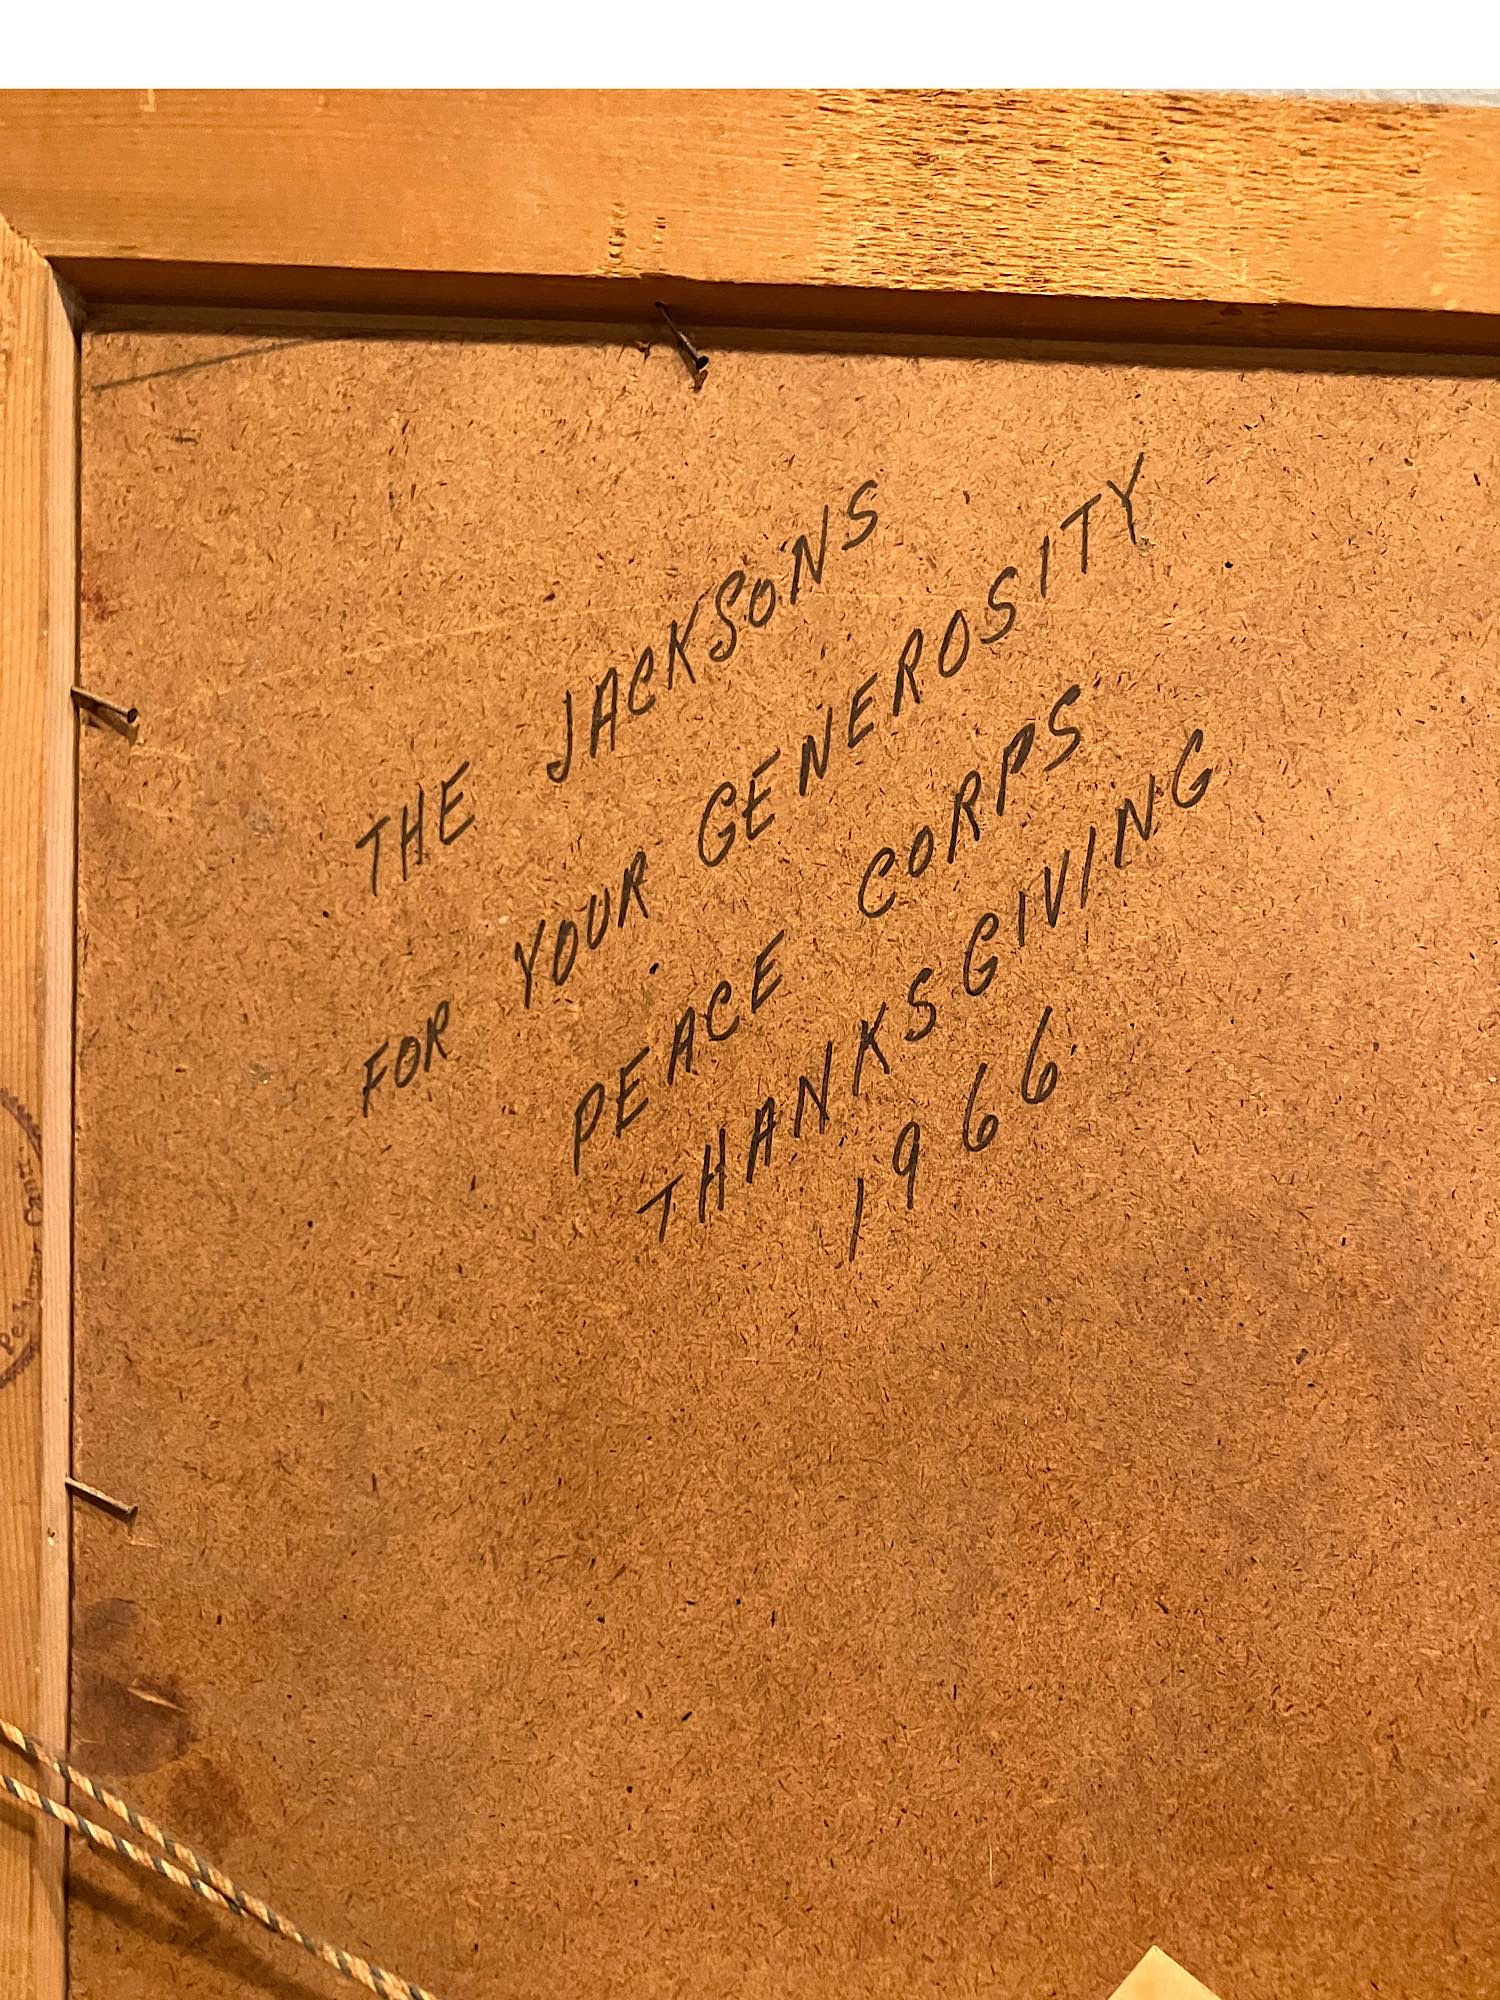 THE JACKSONS
FOR YOUR GENEROSITY
PEACE CORPS
THANKSGIVING
1966